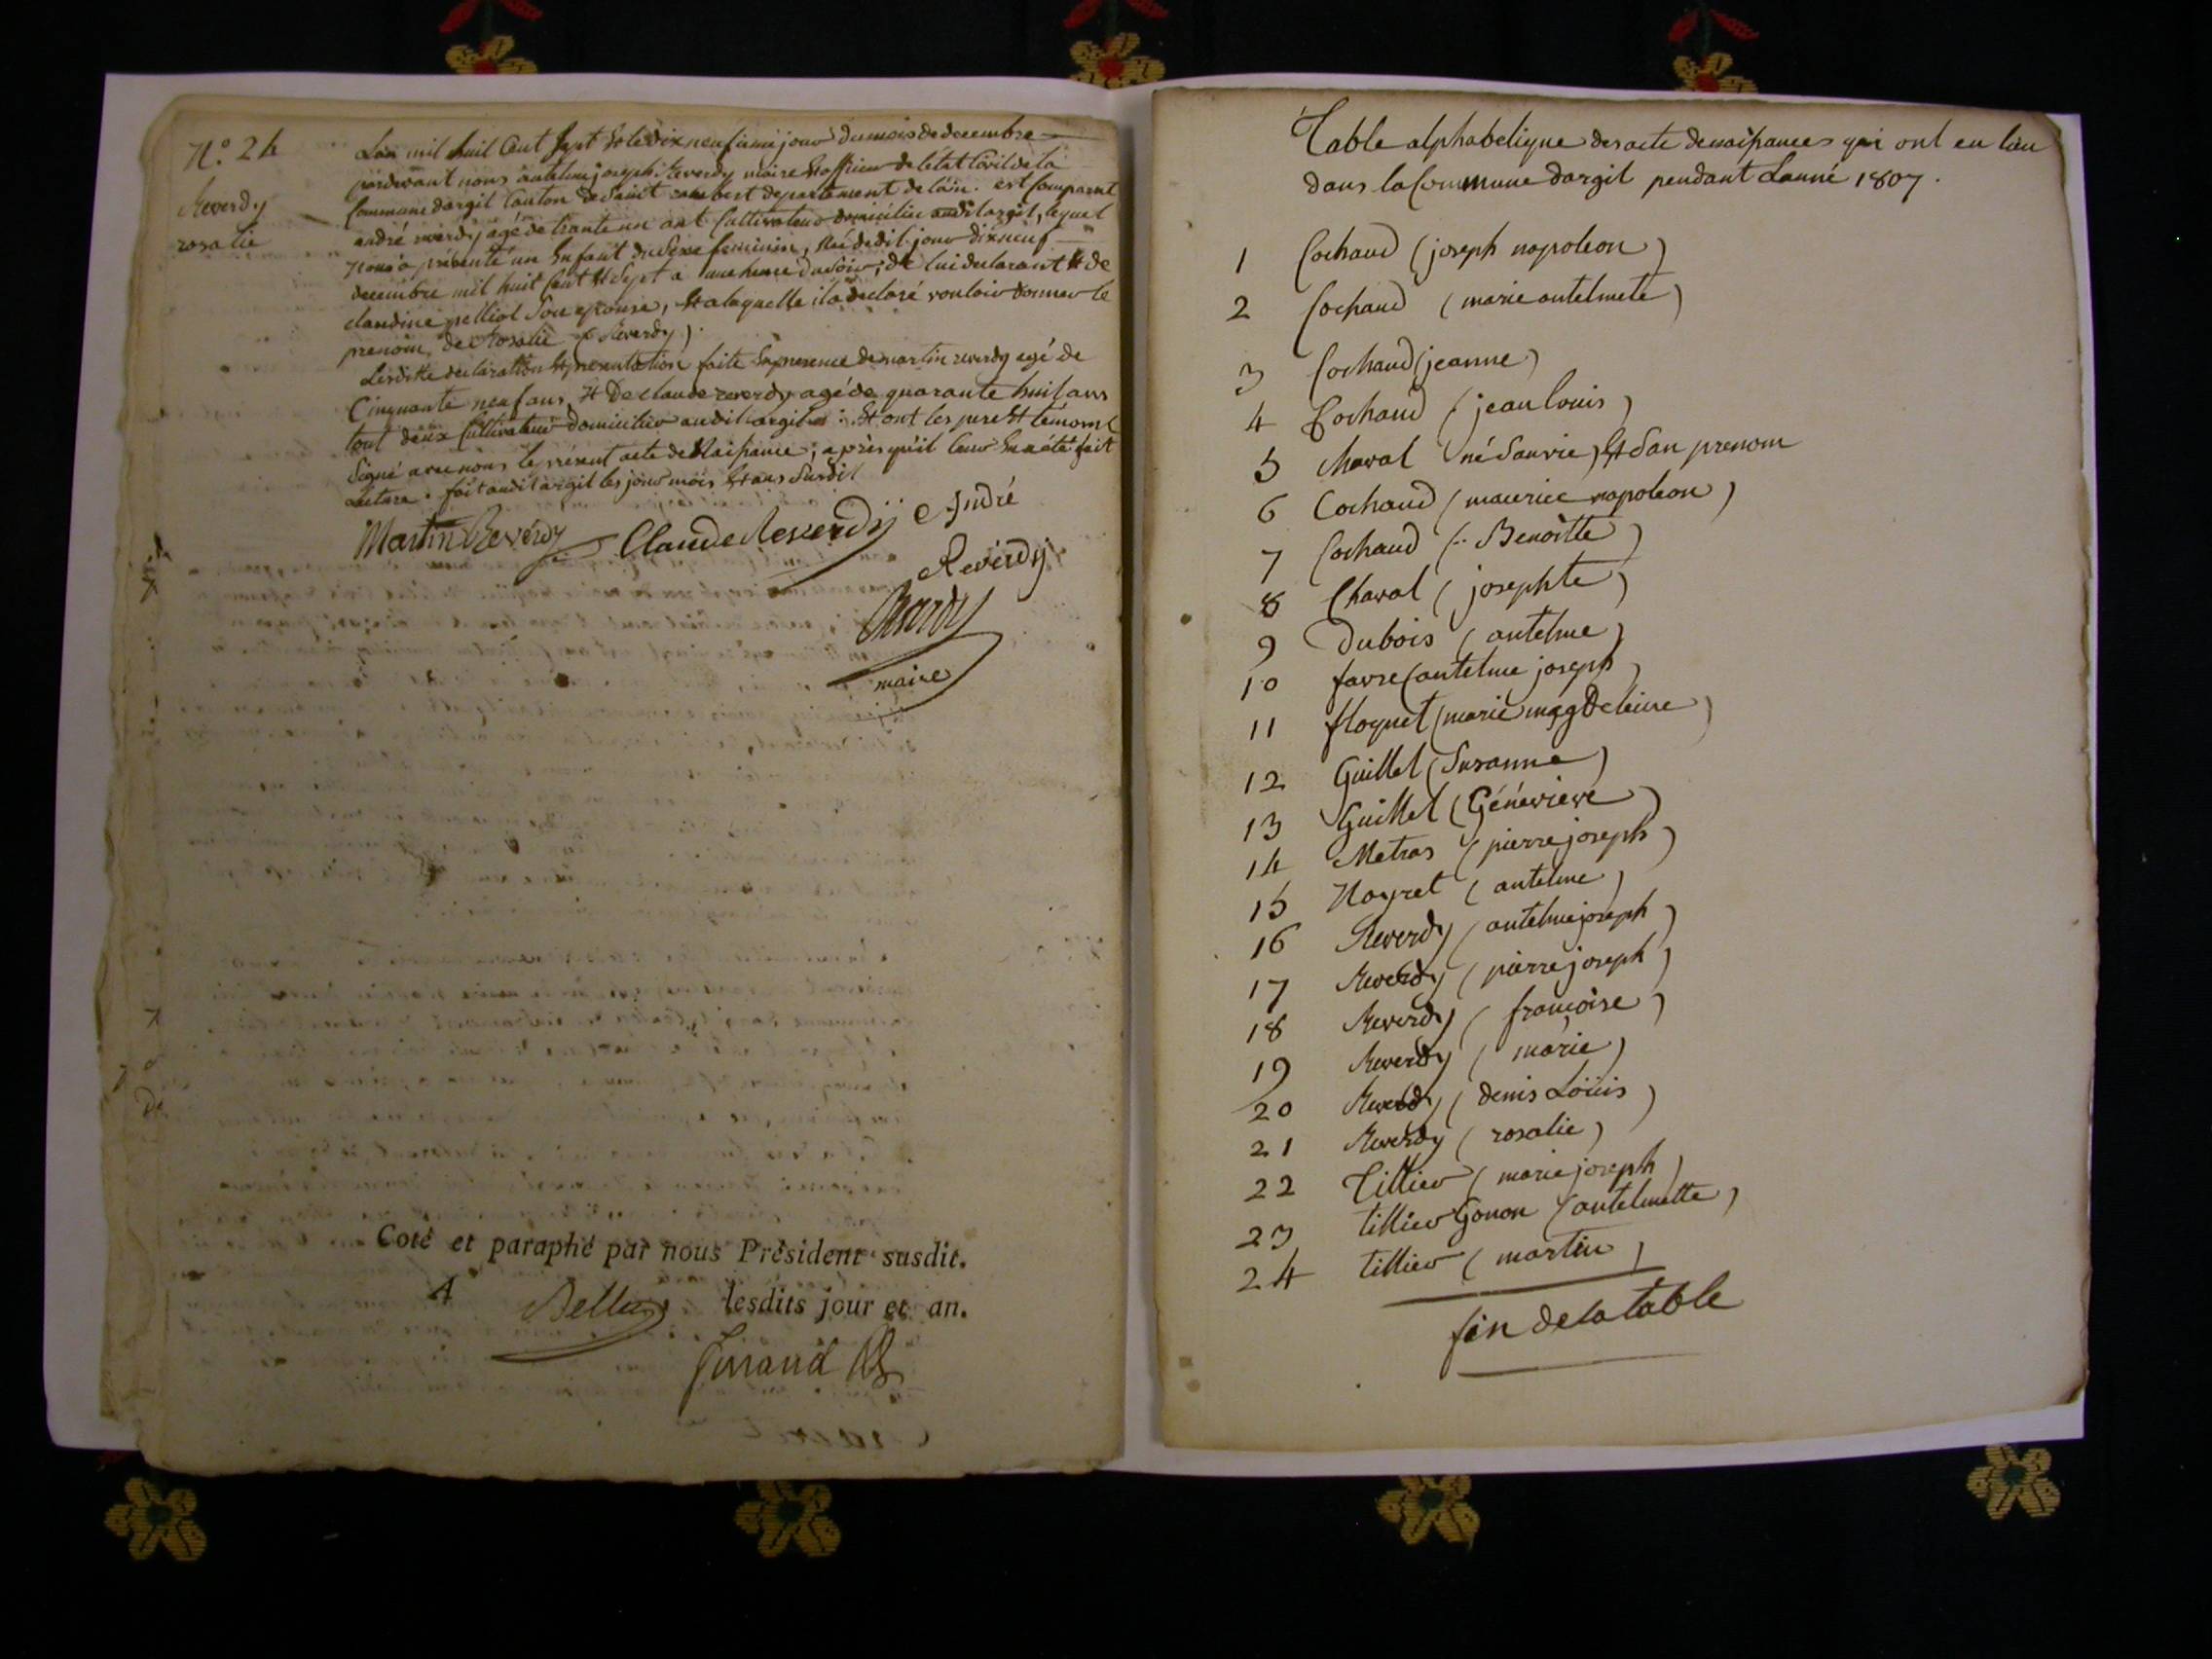 N.° 24
Reverdy
rosalie
Lan mil huil Cent Sept & le dix neufieme jour du mois de decembre
pardevant nous antelme joseph Reverdy maire & officier de letat Civil de la
Commune dargil Canton de Saint rambert departement de lain. est Comparut
andré reverdy agé de trante un ant Cultivateur domicilié audit argit, lequel
nous a présenté un Enfant du Sexe feminin, née dedit jour dix neuf
decembre mil huit Cent & Sept a une heure du Soir, de lui declarant & de
claudine pelliol Son epouse, & a laquelle il a declaré vouloir donner le
prenom de Rosalie (Reverdy).
Lesditte declaration & presentation faite En presence de martin reverdy agé de
Cinquante neuf ans, & De claude reverdy agé de quarante huil ans
tout deux Cultivateur domicilier audit argit : & ont les pere & temoins
Signé avec nous le présent acte de Naissance, après qu'il leur En a été fait
Lecture. fait audit argit les jour mois & ans Susdit
Martin Reverdy Claude Reverdy André
Reverdy
Reverdy
maire
Coté et paraphé par nous Président susdit.
A Belley lesdits jour et an.
Table alphabetique des acte de naissances qui ont eu lieu
dans la Commune dargit pendant Lanné 1807.
1 Cochaud (joseph napoleon)
2 Cochaud (marie antelmete)
3 Cochaud (jeanne)
4 Cochaud (jean louis)
5 Chaval né Sanvie) & San prenom
6 Cochaud (maurice napoleon)
7 Cochaud (Benoitte)
8 Chaval (josephte)
9 Dubois (antelme)
10 favre (antelme joseph)
11 floquet (marie magdeleine)
12 Guillet (Susanne)
13 Guillet (Généviéve)
14 Metras (pierre joseph)
15 Nayret (antelme)
16 Reverdy (antelme joseph)
17 Reverdy (pierre joseph)
18 Reverdy (françoise)
19 Reverdy (marie)
20 Reverdy (denis Loüis)
21 Reverdy (rosalie)
22 Tillier (marie joseph)
23 tillier Gonon (antelmette)
24 tillier (martin)
fin de la table